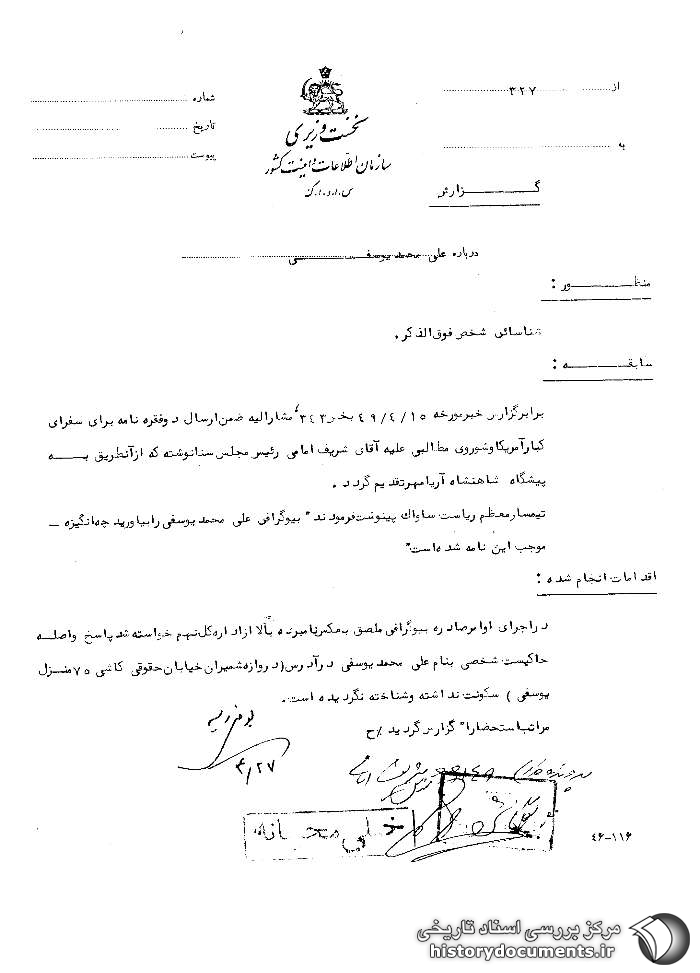 از ۳۲۷
به
شماره
تاریخ
پیوست
نخست وزیری
سازمان اطلاعات و امنیت کشور
س.ا.و.ا.ک
گزارش
درباره علی محمد یوسفی
منظور :
شناسائی شخص فوق الذکر.
سابقه :
برابر گزارش خبر مورخه ۴۹/۴/۱۵ بخش ۳۴۳ مشارالیه ضمن ارسال دو فقره نامه برای سفرای
کبار آمریکا و شوروی مطالبی علیه آقای شریف امامی رئیس مجلس سنا نوشته که از آنطریق به
پیشگاه شاهنشاه آریامهر تقدیم گردد.
تیمسار معظم ریاست ساواک پینوشت فرمودند " بیوگرافی علی محمد یوسفی را بیاورید چه انگیزه
موجب این نامه شده است"
اقدامات انجام شده :
در اجرای اوامر صادره بیوگرافی ملصق بعکس نامبرده بالا از اداره کل نهم خواسته شد پاسخ واصله
حاکیست شخصی بنام علی محمد یوسفی در آدرس (دروازه شمیران خیابان حقوقی کاشی ۷۵ منزل
یوسفی ) سکونت نداشته و شناخته نگردیده است.
مراتب استحضارا" گزارش گردید /ح
۴/۲۷
بایگانی
خیلی محرمانه
۴۶-۱۱۶
مرکز بررسی اسناد تاریخی
historydocuments.ir